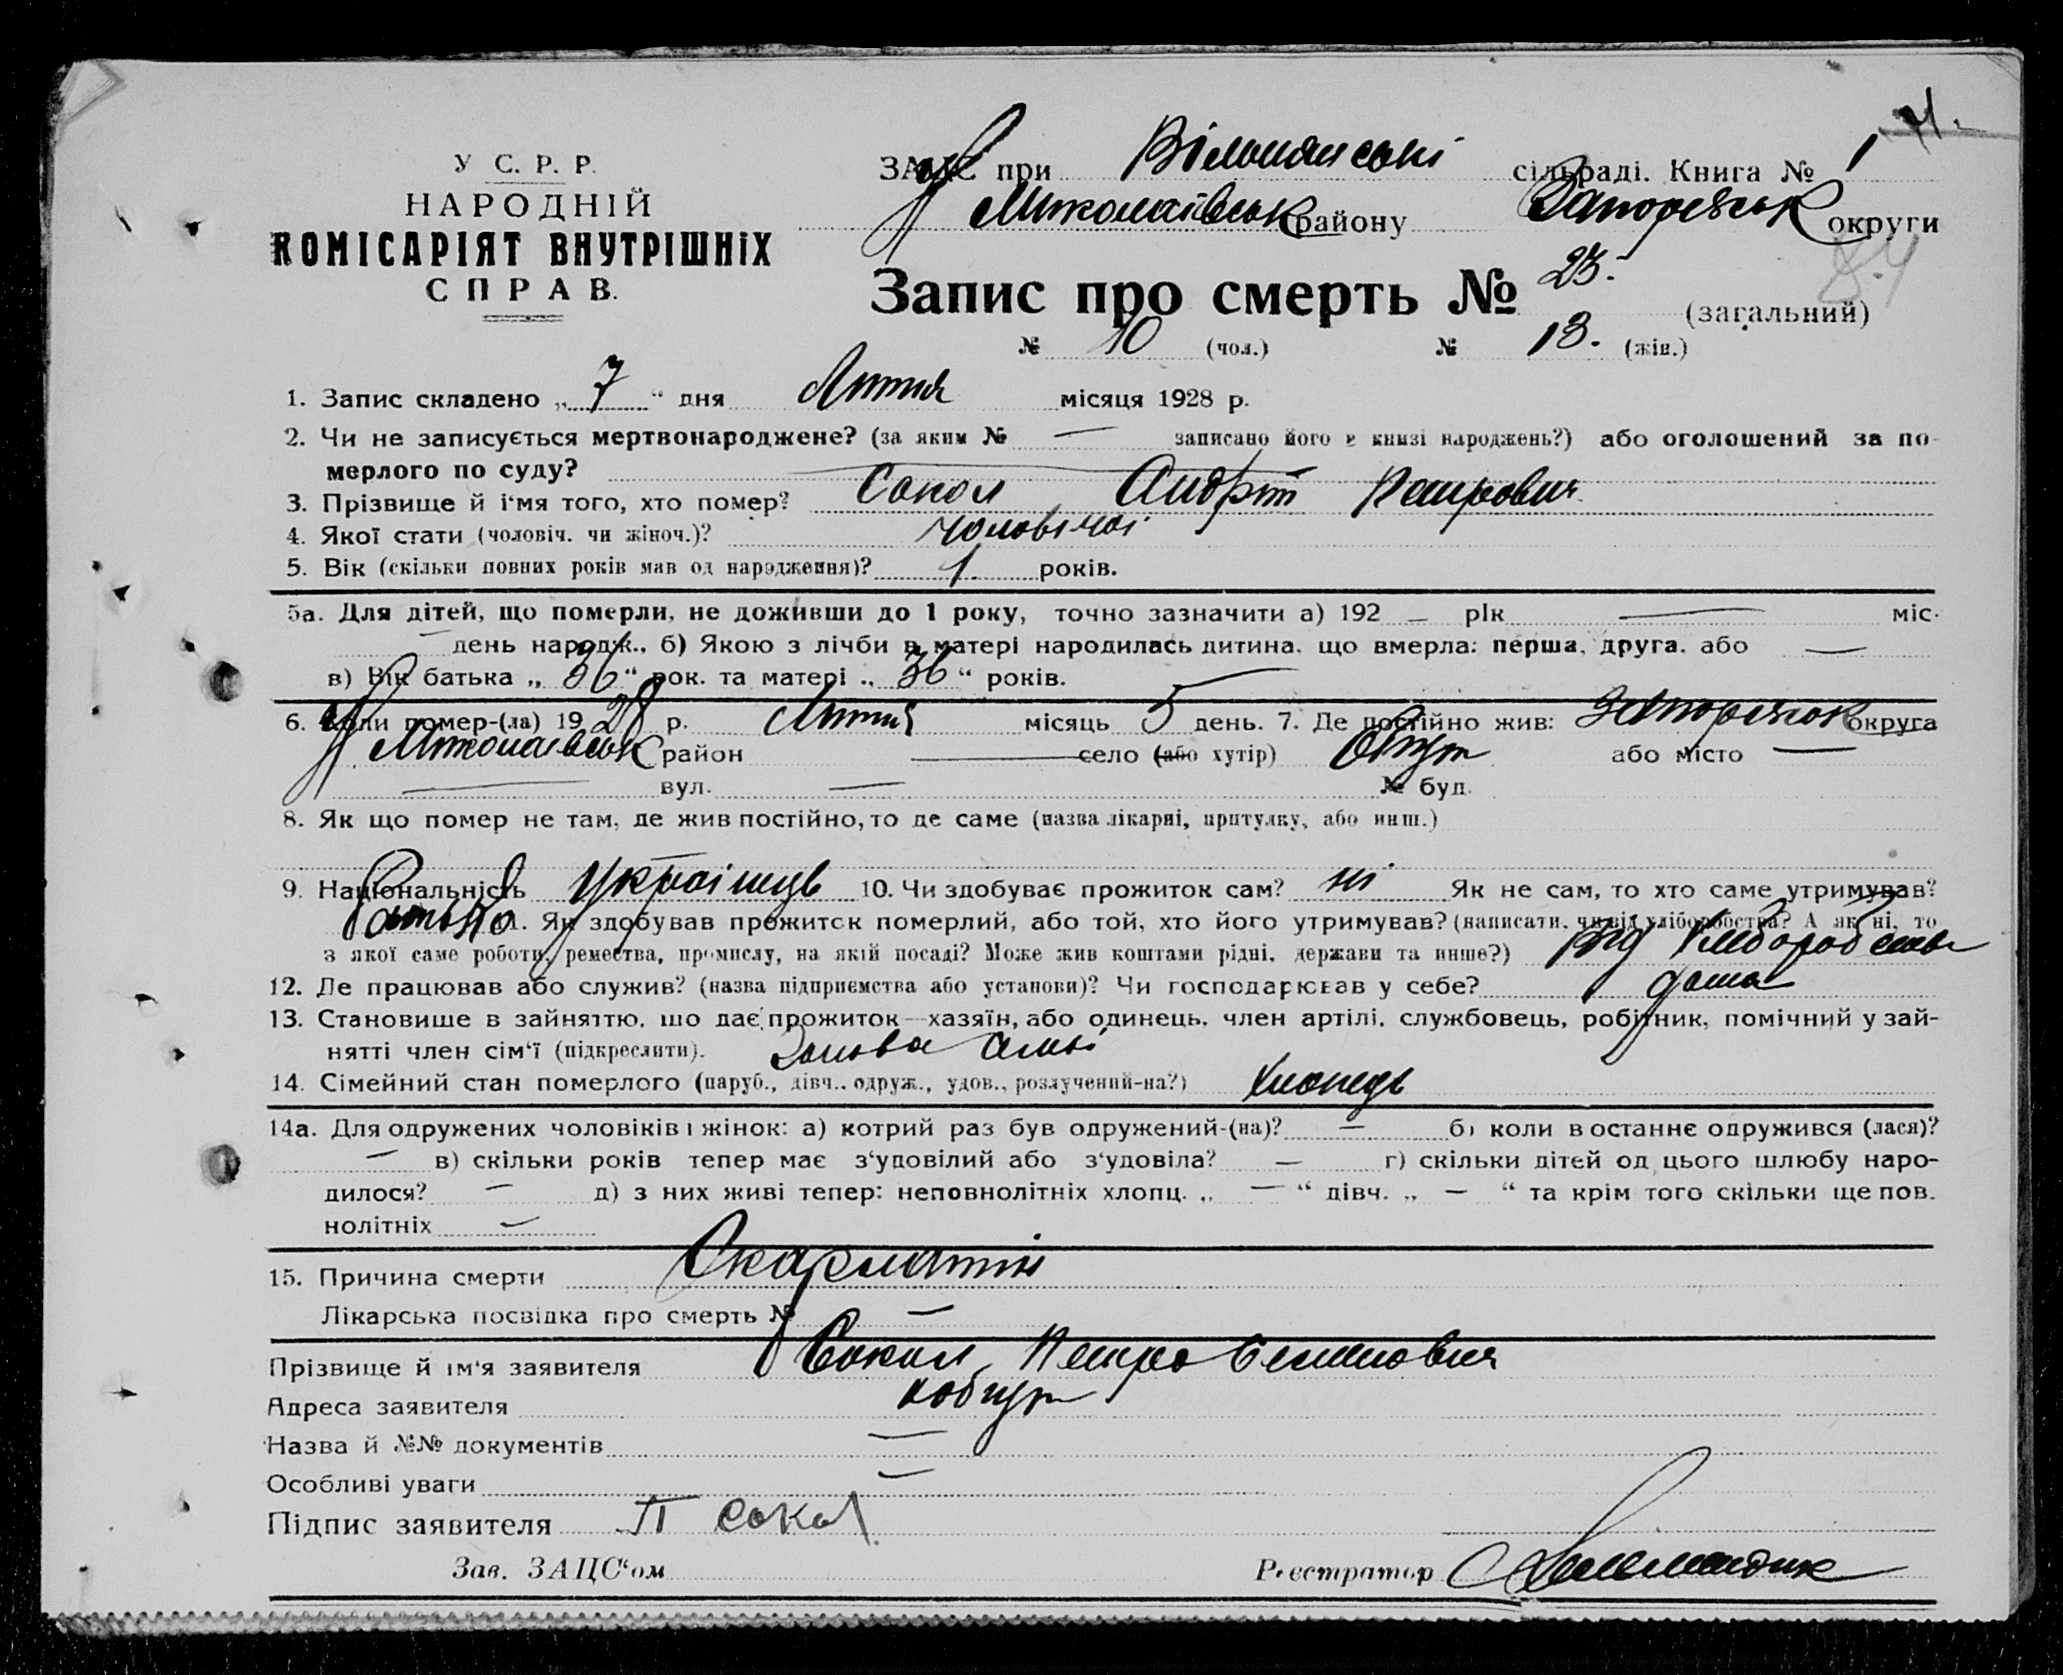 У С. Р. Р.
НАРОДНІЙ
КОМІСАРІЯТ ВНУТРІШНІХ
СПРАВ.
ЗАЦС при сільраді. Книга № 1
Миколаївськ району Запорізьк округи
Запис про смерть № 23. (загальний)
№ 10 (чол.) № 13. (жін.)
1. Запис складено „ 7 “ дня Лютня місяця 1928 р.
2. Чи не записується мертвонароджене? (за яким № — записано його в книзі народжень?) або оголошений за по-
мерлого по суду? —
3. Прізвище й і‘мя того, хто помер? Сокол Андрій Петрович
4. Якої стати (чоловіч. чи жіноч.)? чоловічої
5. Вік (скільки повних років мав од народження)? 1 років.
5а. Для дітей, що померли, не доживши до 1 року, точно зазначити а) 192 — рік — міс.
— день народж., б) Якою з лічби в матері народилась дитина, що вмерла: перша, друга, або —
в) Вік батька „ 36 “ рок. та матері „ 36 “ років.
6. Коли помер-(ла) 1928 р. Лютий місяць 5 день. 7. Де постійно жив: Запорізьк округа
Миколаївськ район — село (або хутір) або місто —
— вул. — № буд.
8. Як що помер не там, де жив постійно, то де саме (назва лікарні, притулку, або инш.)
9. Національність Українець 10. Чи здобуває прожиток сам? ні Як не сам, то хто саме утримував?
Батько 11. Як здобував прожиток померлий, або той, хто його утримував? (написати, чи від хліборобства? А як ні, то
з якої саме роботи, ремества, промислу, на якій посаді? Може жив коштами рідні, держави та инше?) Від хліборобства
12. Де працював або служив? (назва підприємства або установи)? Чи господарював у себе? дома
13. Становище в зайняттю, що дає прожиток—хазяїн, або одинець, член артілі, службовець, робітник, помічний у зай-
нятті член сім‘ї (підкреслити). Голова сімї
14. Сімейний стан померлого (паруб., дівч., одруж., удов., розлучений-на?) хлопець
14а. Для одружених чоловіків і жінок: а) котрий раз був одружений-(на)? — б) коли востаннє одружився (лася)?
— в) скільки років тепер має з‘удовілий або з‘удовіла? — г) скільки дітей од цього шлюбу наро-
дилося? — д) з них живі тепер: неповнолітніх хлопц. „ — “ дівч. „ — “ та крім того скільки ще пов.
нолітніх —
15. Причина смерти Скарлатін
Лікарська посвідка про смерть № —
Прізвище й ім‘я заявителя Сокол Петро Семенович
Адреса заявителя
Назва й №№ документів —
Особливі уваги —
Підпис заявителя П Сокол
Зав. ЗАЦС‘ом Реєстратор